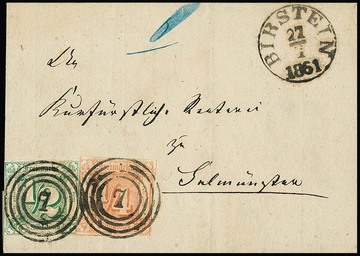 BIRSTEIN
27
1
1861
An
Kurfürstliche Renterei
zu
Salmünster
7 7